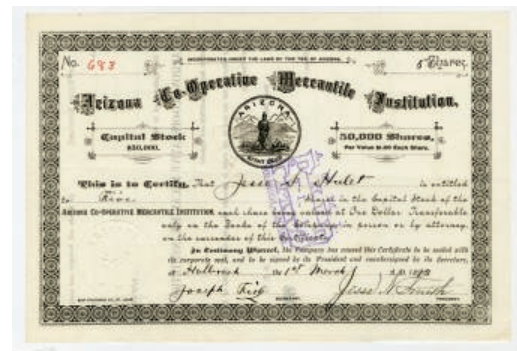 No. 683
INCORPORATED UNDER THE LAWS OF THE TER. OF ARIZONA.
5 Shares
Arizona Co-Operative Mercantile Institution.
ARIZONA
Capital Stock
$50,000.
50,000 Shares,
Par Value $1.00 Each Share.
This is to Certify, That Jesse N. Hulet is entitled
to Five Shares in the Capital Stock of the
ARIZONA CO-OPERATIVE MERCANTILE INSTITUTION, each share being valued at One Dollar Transferable
only on the Books of the in person or by attorney,
on the surrender of this Certificate.
In Testimony Whereof, the Company has caused this Certificate to be sealed with
its corporate seal, and to be signed by its President and countersigned by its Secretary,
at Holbrook 1st March A.D.
Joseph SECRETARY. Jesse N. Smith PRESIDENT.